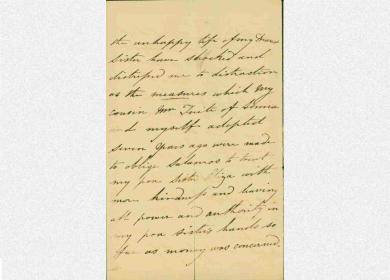 the unhappy life of my dear
Sister have shocked and
distressed me to distraction
as the measures which my
cousin Mr Tuite of Sonna
and myself adopted
seven years ago were made
to oblige Salamos to treat
my poor sister Eliza with
more kindness and having
all power and authority in
my poor sisters hands so
far as money was concerned